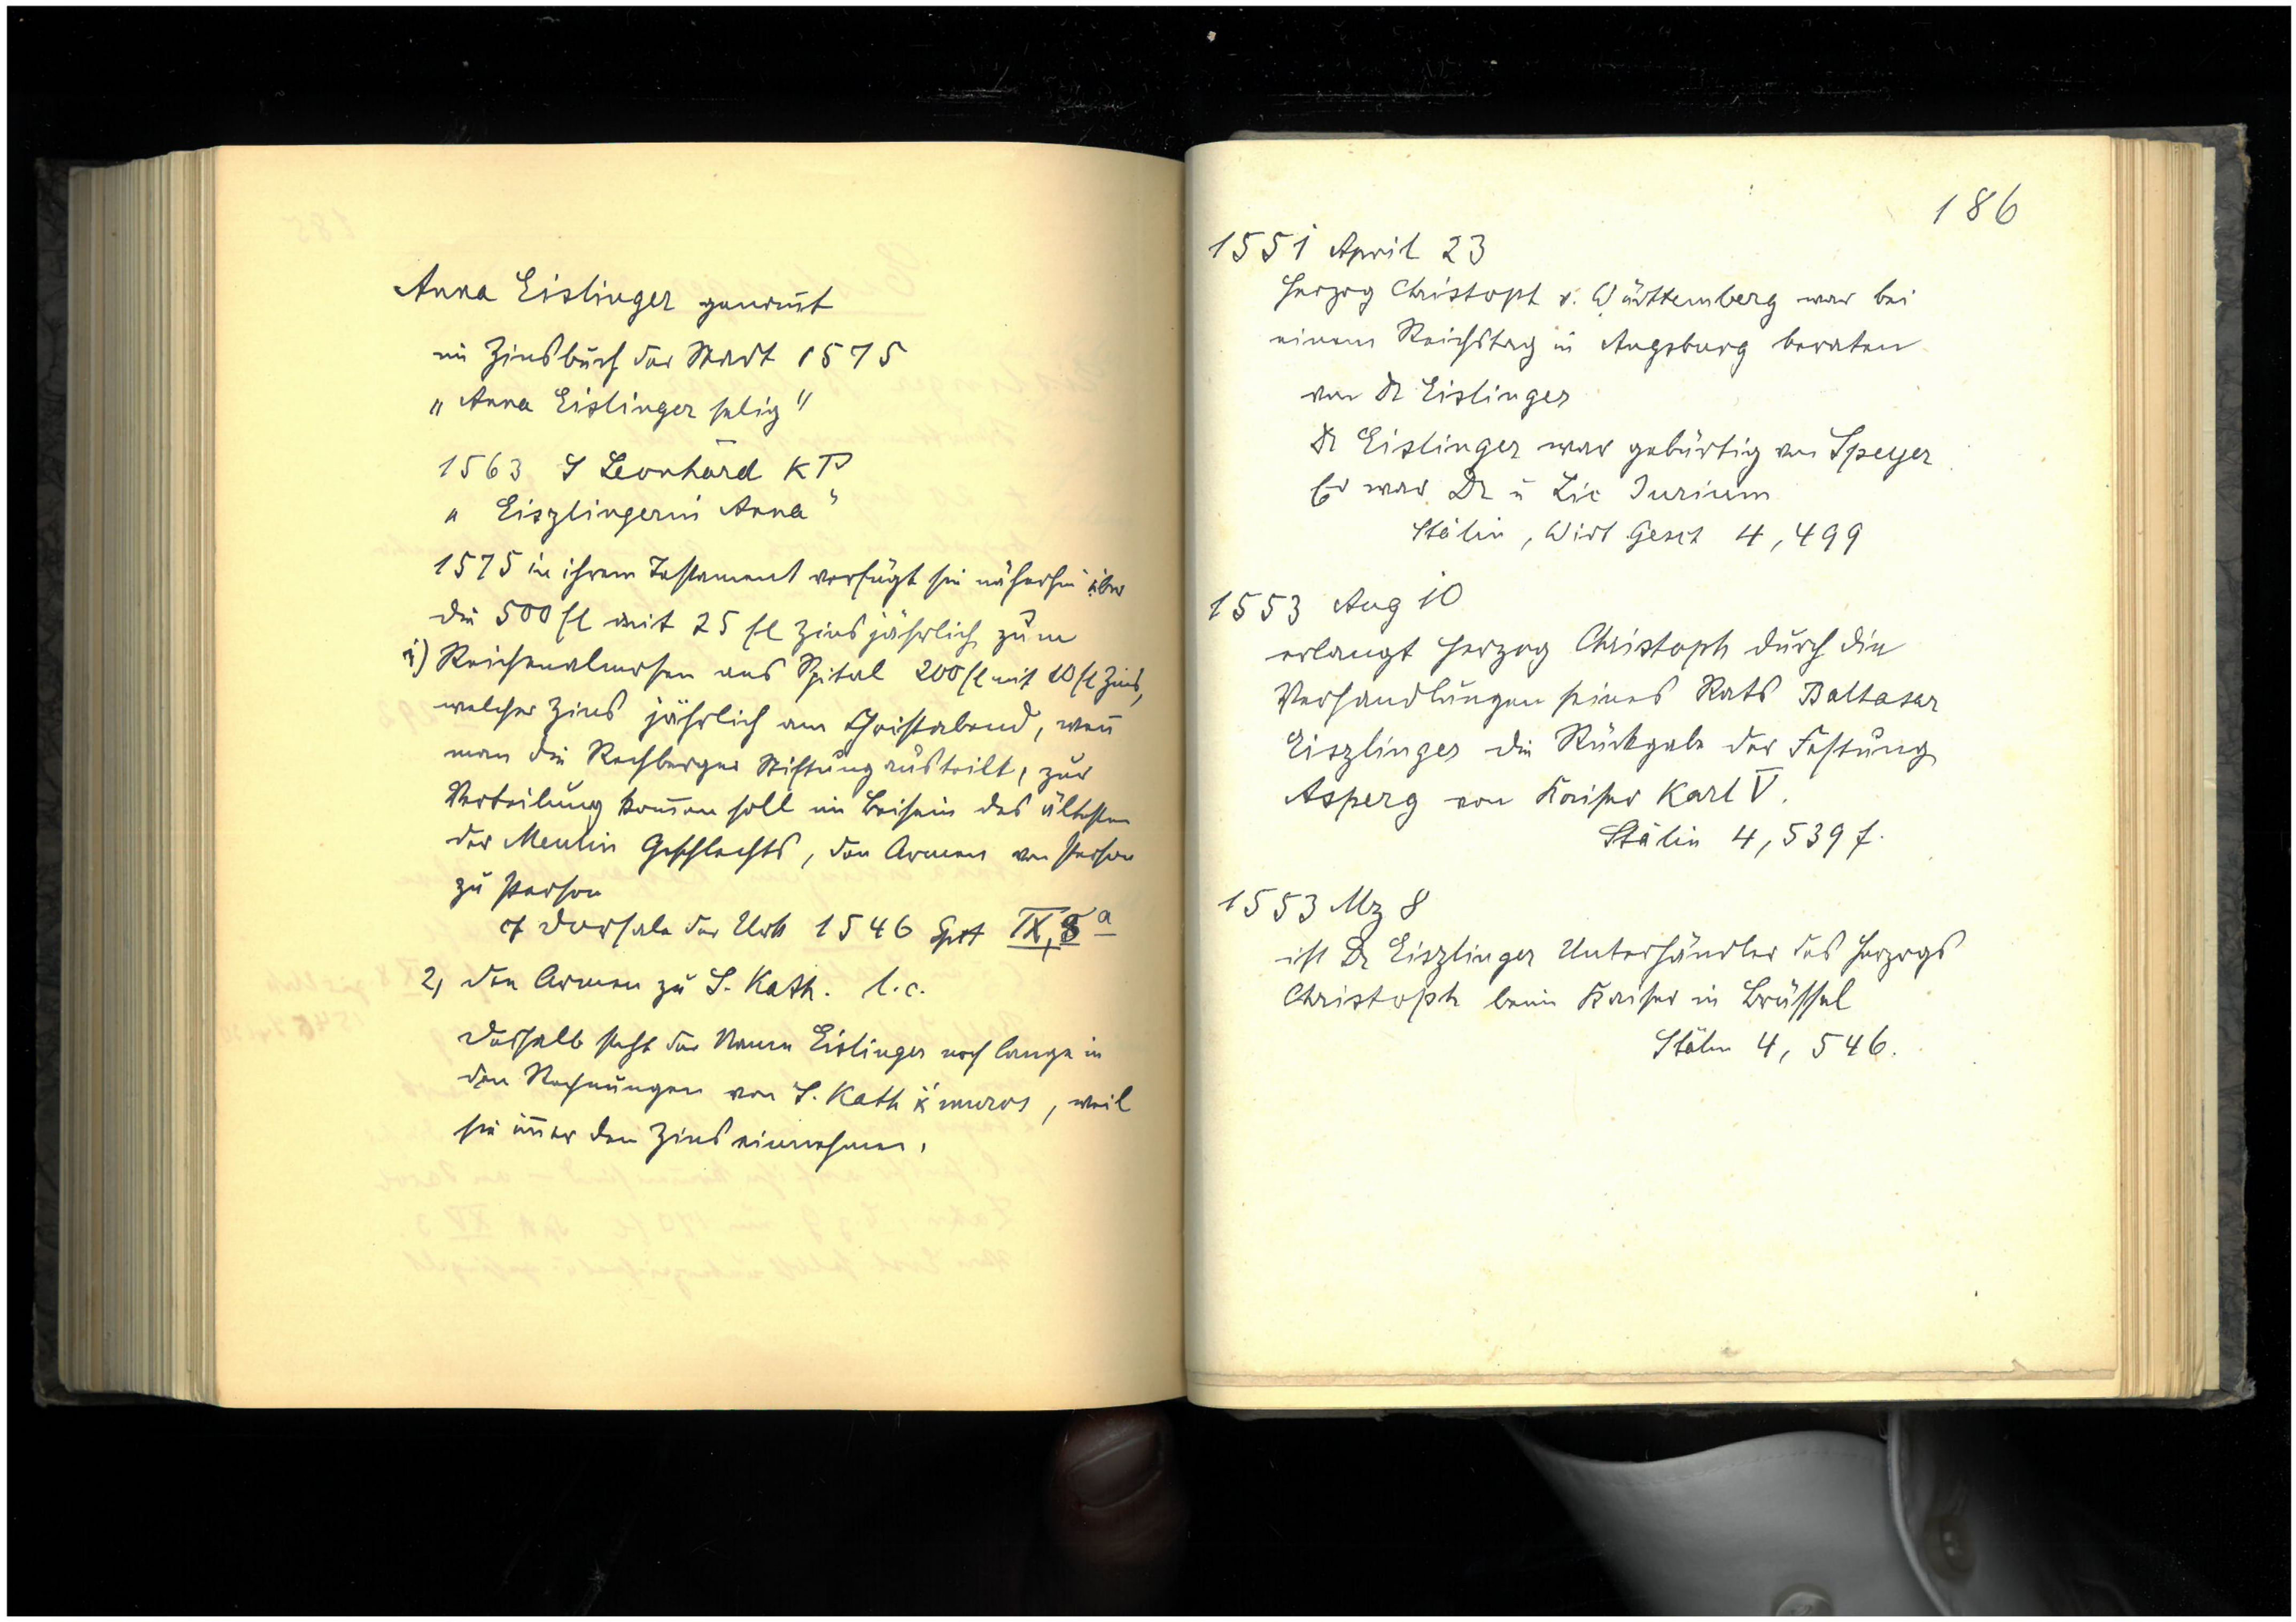 Anna Eislinger genannt
im Zinsbuch der Stadt 1575
„Anna Eislinger selig"
1563 S Leonhard KP
„Eiszlingerin Anna"
1575 in ihrem Testament verfügt sie näherhin über
die 500 fl mit 25 fl Zins jährlich zum
1) Reichenalmosen ans Spital 200 fl mit 10 fl Zins,
welcher Zins jährlich am Christabend, weñ
man die Rechberger Stiftung austeilt, zur
Verteilung kom̄en soll im Beisein des ältesten
der Meulin Geschlechts, den Armen von Person
zu Person
cf Dorsale der Urk 1546 Spit IX, 8 a
2, den Armen zu S. Kath. l.c.
Deshalb steht der Name Eislinger noch lange in
den Rechnungen von S. Kath muros, weil
sie im̄er den Zins einnehmen.
186
1551 April 23
Herzog Christoph v. Württemberg war bei
einem Reichstag in Augsburg beraten
von Dr Eislinger
Dr Eislinger war gebürtig von Speyer
Er war Dr u Lic Jurium
Stälin, Wirt Gesch 4, 499
1553 Aug 10
erlangt Herzog Christoph durch die
Verhandlungen seines Rats Baltasar
Eiszlinger die Rückgabe der Festung
Asperg von Kaiser Karl V.
Stälin 4, 539 f.
1553 Mz 8
ist Dr Eiszlinger Unterhändler des Herzogs
Christoph beim Kaiser in Brüssel
Stälin 4, 546.